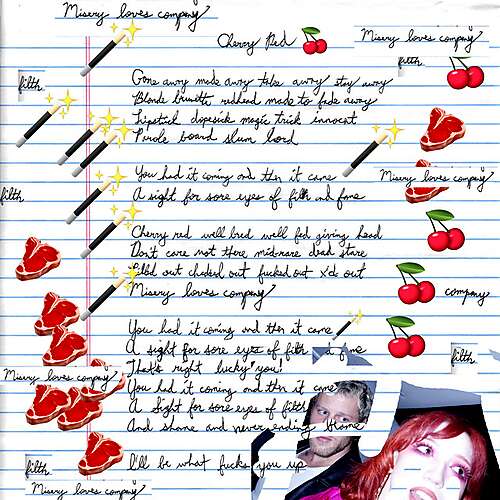 Misery loves company
Cherry Red
Misery loves company
filth
filth
Gone awry made awry take away stay away
Blonde brunette, redhead made to fade away
Lipstick dopesick magic trick innocent
Parole board slum lord
You had it coming and then it came
Misery loves company
A sight for sore eyes of filth and fame
filth
Cherry red well bred well fed giving head
Don't care not there mid-rare dead stare
out out fucked out x'd out
Misery loves company
company
You had it coming and then it came
A sight for sore eyes of filth fame
filth
That's right lucky you!
Misery loves company
You had it coming and then it came
A sight for sore eyes of filth
And shame and never ending blame
I'll be what fucks you up
filth
Misery loves company